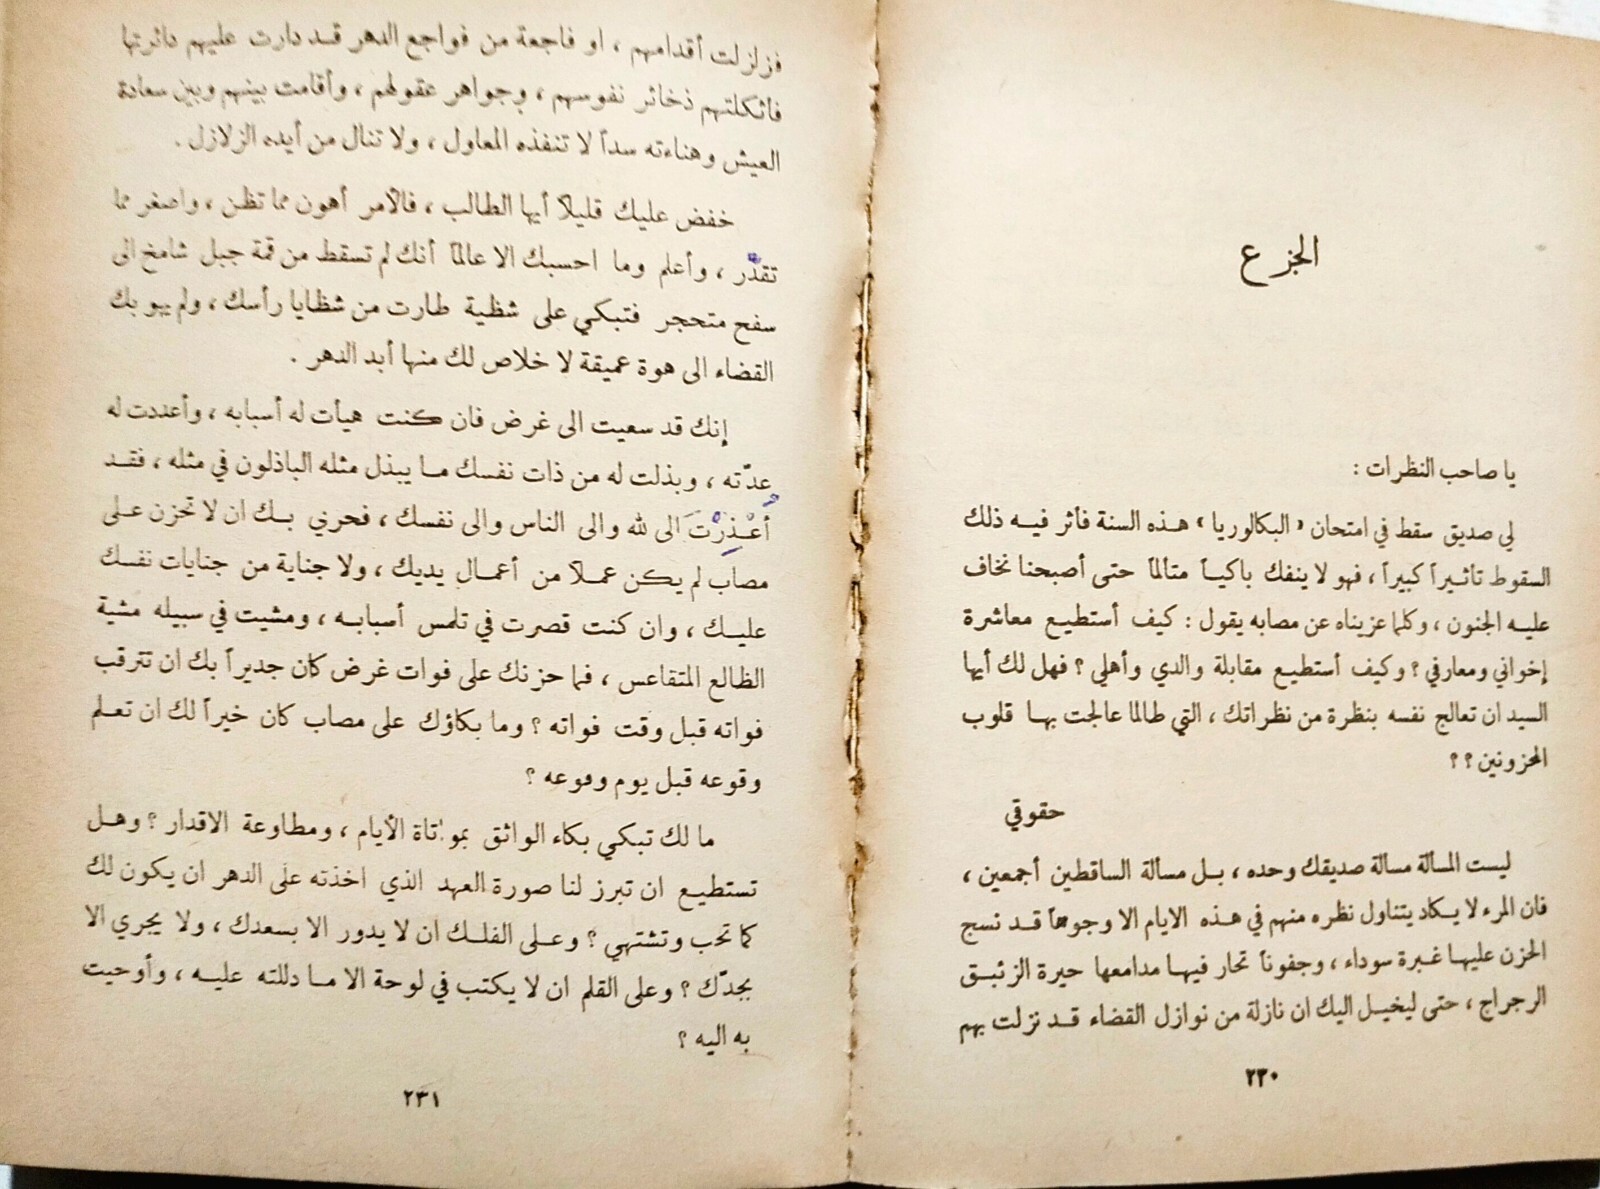 الجزع
يا صاحب النظرات :
لي صديق سقط في امتحان « البكالوريا » هذه السنة فأثر فيه ذلك
السقوط تأثيراً كبيراً ، فهو لا ينفك باكياً متألماً حتى أصبحنا نخاف
عليه الجنون ، وكلما عزيناه عن مصابه يقول : كيف أستطيع معاشرة
إخواني ومعارفي ؟ وكيف أستطيع مقابلة والدي وأهلي ؟ فهل لك أيها
السيد ان تعالج نفسه بنظرة من نظراتك ، التي طالما عالجت بها قلوب
المحزونين ؟ ؟
حقوقي
ليست المسألة مسألة صديقك وحده ، بل مسألة الساقطين أجمعين ،
فان المرء لا يكاد يتناول نظره منهم في هذه الايام الا وجوهاً قد نسج
الحزن عليها غبرة سوداء ، وجفوناً تحار فيها مدامعها حيرة الزئبق
الرجراج ، حتى ليخيل اليك ان نازلة من نوازل القضاء قد نزلت بهم
٢٣٠
فزلزلت أقدامهم ، او فاجعة من فواجع الدهر قد دارت عليهم دائرتها
فأثكلتهم ذخائر نفوسهم ، وجواهر عقولهم ، وأقامت بينهم وبين سعادة
العيش وهناءته سداً لا تنفذه المعاول ، ولا تنال من أيده الزلازل .
خفض عليك قليلاً أيها الطالب ، فالأمر أهون مما تظن ، واصغر مما
تقدّر ، وأعلم وما احسبك الا عالماً أنك لم تسقط من قمة جبل شامخ الى
سفح متحجر فتبكي على شظية طارت من شظايا رأسك ، ولم يهو بك
القضاء الى هوة عميقة لا خلاص لك منها أبد الدهر .
إنك قد سعيت الى غرض فان كنت هيأت له أسبابه ، وأعددت له
عدّته ، وبذلت له من ذات نفسك ما يبذل مثله الباذلون في مثله ، فقد
أُعْذِرْتَ الى لله والى الناس والى نفسك ، فحري بك ان لا تحزن على
مصاب لم يكن عملاً من أعمال يديك ، ولا جناية من جنايات نفسك
عليك ، وان كنت قصرت في تلمس أسبابه ، ومشيت في سبيله مشية
الظالع المتقاعس ، فما حزنك على فوات غرض كان جديراً بك ان تترقب
فواته قبل وقت فواته ؟ وما بكاؤك على مصاب كان خيراً لك ان تعلم
وقوعه قبل يوم وقوعه ؟
ما لك تبكي بكاء الواثق بمواتاة الأيام ، ومطاوعة الاقدار ؟ وهل
تستطيع ان تبرز لنا صورة العهد الذي اخذته على الدهر ان يكون لك
كما تحب وتشتهي ؟ وعلى الفلك ان لا يدور الا بسعدك ، ولا يجري الا
بجدّك ؟ وعلى القلم ان لا يكتب في لوحة الا ما دللته عليه ، وأوحيت
به اليه ؟
٢٣١